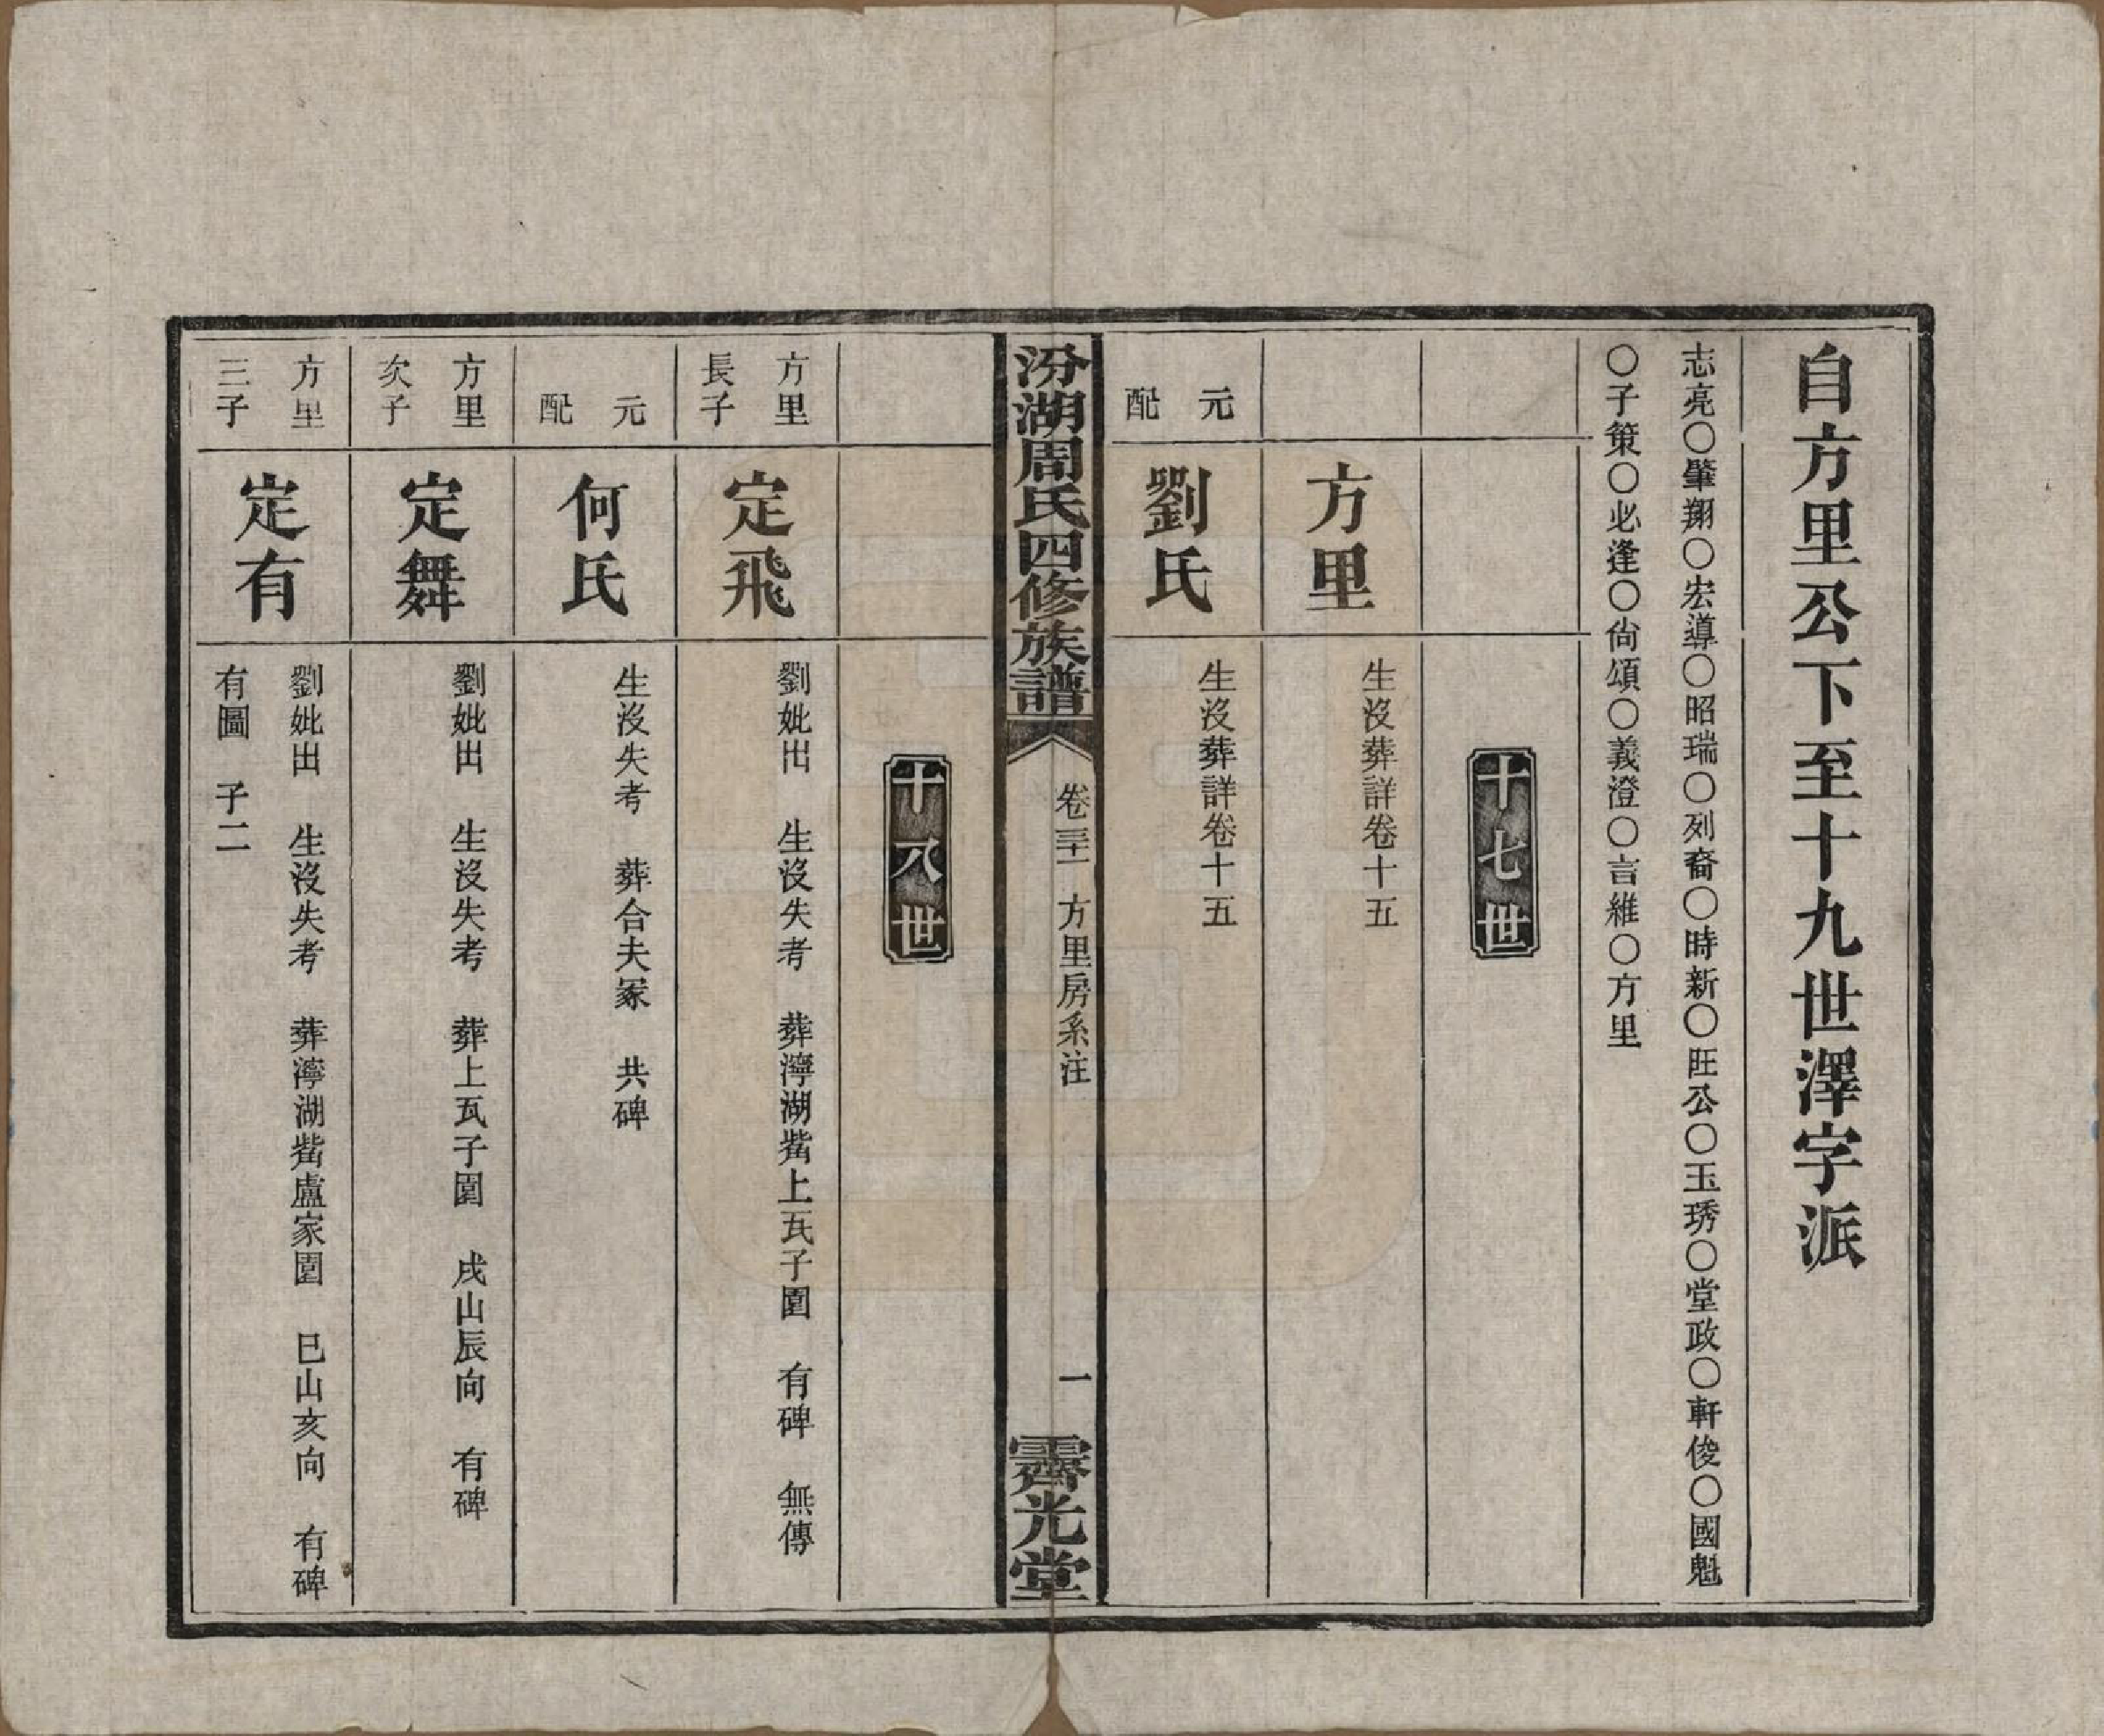 自方里公下至十九世澤字派
志亮〇肇翔〇宏導〇昭瑞〇列裔〇時新〇旺公〇玉琇〇堂政〇軒俊〇國魁
〇子策〇必逢〇尙頌〇義澄〇言維〇方里
十七世
方里
生沒葬詳卷十五
元配
劉氏
生沒葬詳卷十五
汾湖周氏四修族譜
卷三十一
方里房系注
一
霽光堂
十八世
方里長子
定飛
劉妣出 生沒失考 葬濘湖觜上瓦子園 有碑 無傳
元配
何氏
生沒失考 葬合夫冢 共碑
方里次子
定舞
劉妣出 生沒失考 葬上瓦子園 戌山辰向 有碑
方里三子
定有
劉妣出 生沒失考 葬濘湖觜盧家園 巳山亥向 有碑
有圖 子二